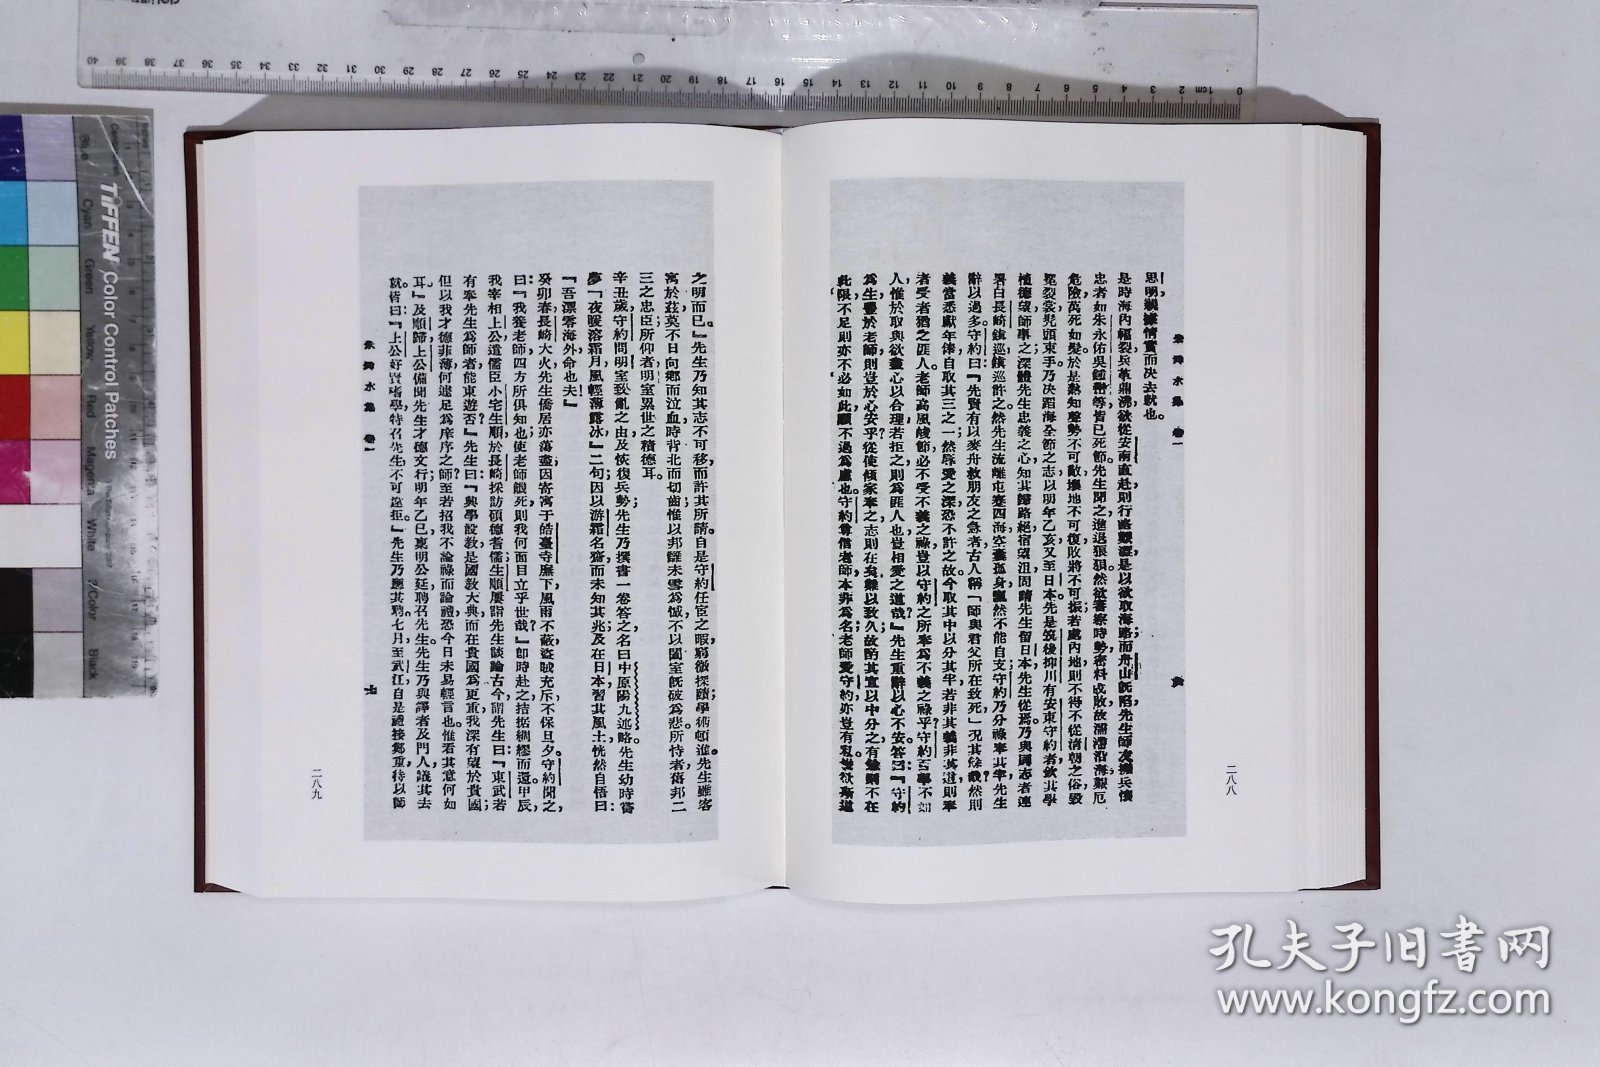 朱舜水集 卷一
思明親攄情實而决去就也。
是時海內幅裂兵革鼎沸欲從安南直赴則行路艱澀是以欲取海路而舟山既陷先生師友擁兵懷
忠者如朱永佑吳鍾巒等皆已死節先生聞之進退狼狽然欲審察時勢密料成敗故濡滯沿海艱厄
危險萬死如髮於是熟知聲勢不可敵壤地不可復敗將不可振若處內地則不得不從清朝之俗毀
冕裂裳髡頭束手乃决蹈海全節之志以明年乙亥又至日本先是筑後柳川有安東守約者欽其學
植德望師事之深體先生忠義之心知其歸路絕宿望沮固請先生留日本先生從焉乃與同志者連
署白長崎鎮巡鎮巡許之然先生流離屯蹇四海空囊孤身飄然不能自支守約乃分祿奉其半先生
辭以過多守約曰：『先賢有以麥舟救朋友之急者古人稱「師與君父所在致死」況其餘哉然則
義當悉獻年俸自取其三之一然辱愛之深恐不許之故今取其中以分其半若非其義非其道則奉
者受者猶之匪人老師高風峻節必不受不義之祿豈以守約之所奉為不義之祿乎守約百事不如
人惟於取與欲盡心以合理若拒之則為匪人也豈相愛之道哉』先生重辭以心不安答曰：『守約
為生疊於老師則豈於心安乎從使傾家奉之志則在矣難以致久故酌其宜以中分之有餘則不在
此限不足則亦不必如此願不過為慮也守約尊信老師本非為名老師愛守約亦豈有私幾欲斯道
六
二八八
之明而已。』先生乃知其志不可移而許其所請自是守約任官之暇窮微探賾學術頓進先生雖客
寓於茲莫不日向鄉而泣血時背北而切齒惟以邦讎未雪為憾不以闔室既破為悲所恃者舊邦二
三之忠臣所仰者明室累世之積德耳。
辛丑歲守約問明室致亂之由及恢復兵勢先生乃撰書一卷答之名曰中原陽九述略先生幼時嘗
夢「夜暖溶霜月風輕薄露冰」二句因以游霜名齋而未知其兆及在日本習其風土恍然自悟曰：
『吾漂零海外命也夫！』
癸卯春長崎大火先生僑居亦蕩盡因寄寓于皓臺寺廡下風雨不蔽盜賊充斥不保旦夕。守約聞之
曰：『我養老師四方所俱知也使老師餓死則我何面目立乎世哉』即時赴之拮据綢繆而還甲辰
我宰相上公遣儒臣小宅生順於長崎採訪碩德耆儒生順屢詣先生談論古今謂先生曰：『東武若
有奉先生為師者能東遊否？』先生曰：『興學設教是國家大典而在貴國為更重我深有望於貴國
但以我才德菲薄何遽足為庠序之師至若招我不論祿而論禮恐今日未易輕言也惟看其意何如
耳』及順歸上公備聞先生才德文行明年乙巳稟明公廷聘召先生先生乃與譯者及門人議其去
就皆曰：『上公好賢嗜學特召先生不可遽拒』先生乃應其聘七月至武江自是禮接鄭重待以師
朱舜水集 卷一
七
二八九
TIFFEN Color Control Patches
Blue
Cyan
Green
Yellow
Red
Magenta
White
3/Color
Black
孔夫子旧書网
www.kongfz.com